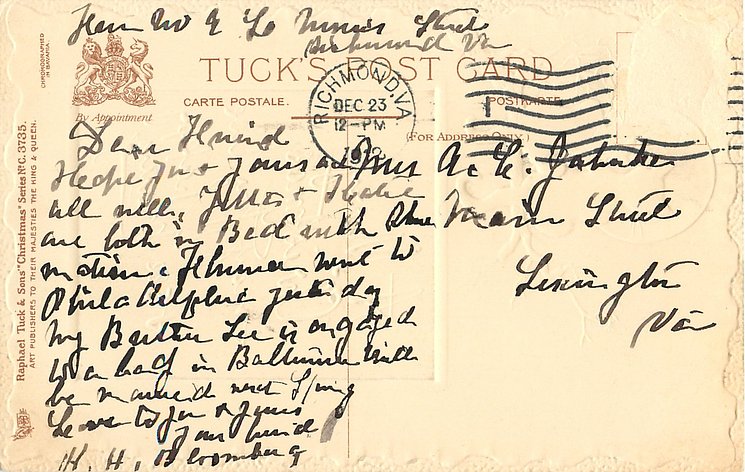 Richmond Va
CHROMOGRAPHED
IN BAVARIA
By Appointment
TUCK'S POST CARD
CARTE POSTALE. POSTKARTE
(FOR ADDRESS ONLY.)
RICHMOND, VA.
DEC 23
12-PM
Raphael Tuck & Sons' "Christmas" Series No. C. 3735.
ART PUBLISHERS TO THEIR MAJESTIES THE KING & QUEEN.
Dear Friend
Hope you & yours are
all well,
are both in Bed with Rheu
matism went to
Philadelphia yesterday
My Brother Lee is engaged
to a lady in Baltimore will
be married next Spring
Love to you & yours
your friend
H. H. Bloomberg
Mrs A. L.
Main Street
Lexington
Va